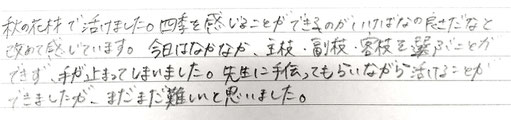 秋の花材で活けました。四季を感じることができるのがいけばなの良さだなと
改めて感じています。今日はなかなか、主枝・副枝・客枝を選ぶことが
できず、手が止まってしまいました。先生に手伝ってもらいながら活けることが
できましたが、まだまだ難しいと思いました。